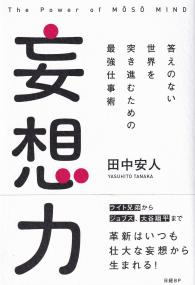 The Power of MŌSŌ MIND
答えのない
世界を
突き進むための
最強仕事術
妄想力
田中安人
YASUHITO TANAKA
ライト兄弟から
ジョブズ、大谷翔平まで
革新はいつも
壮大な妄想から
生まれる!
日経BP